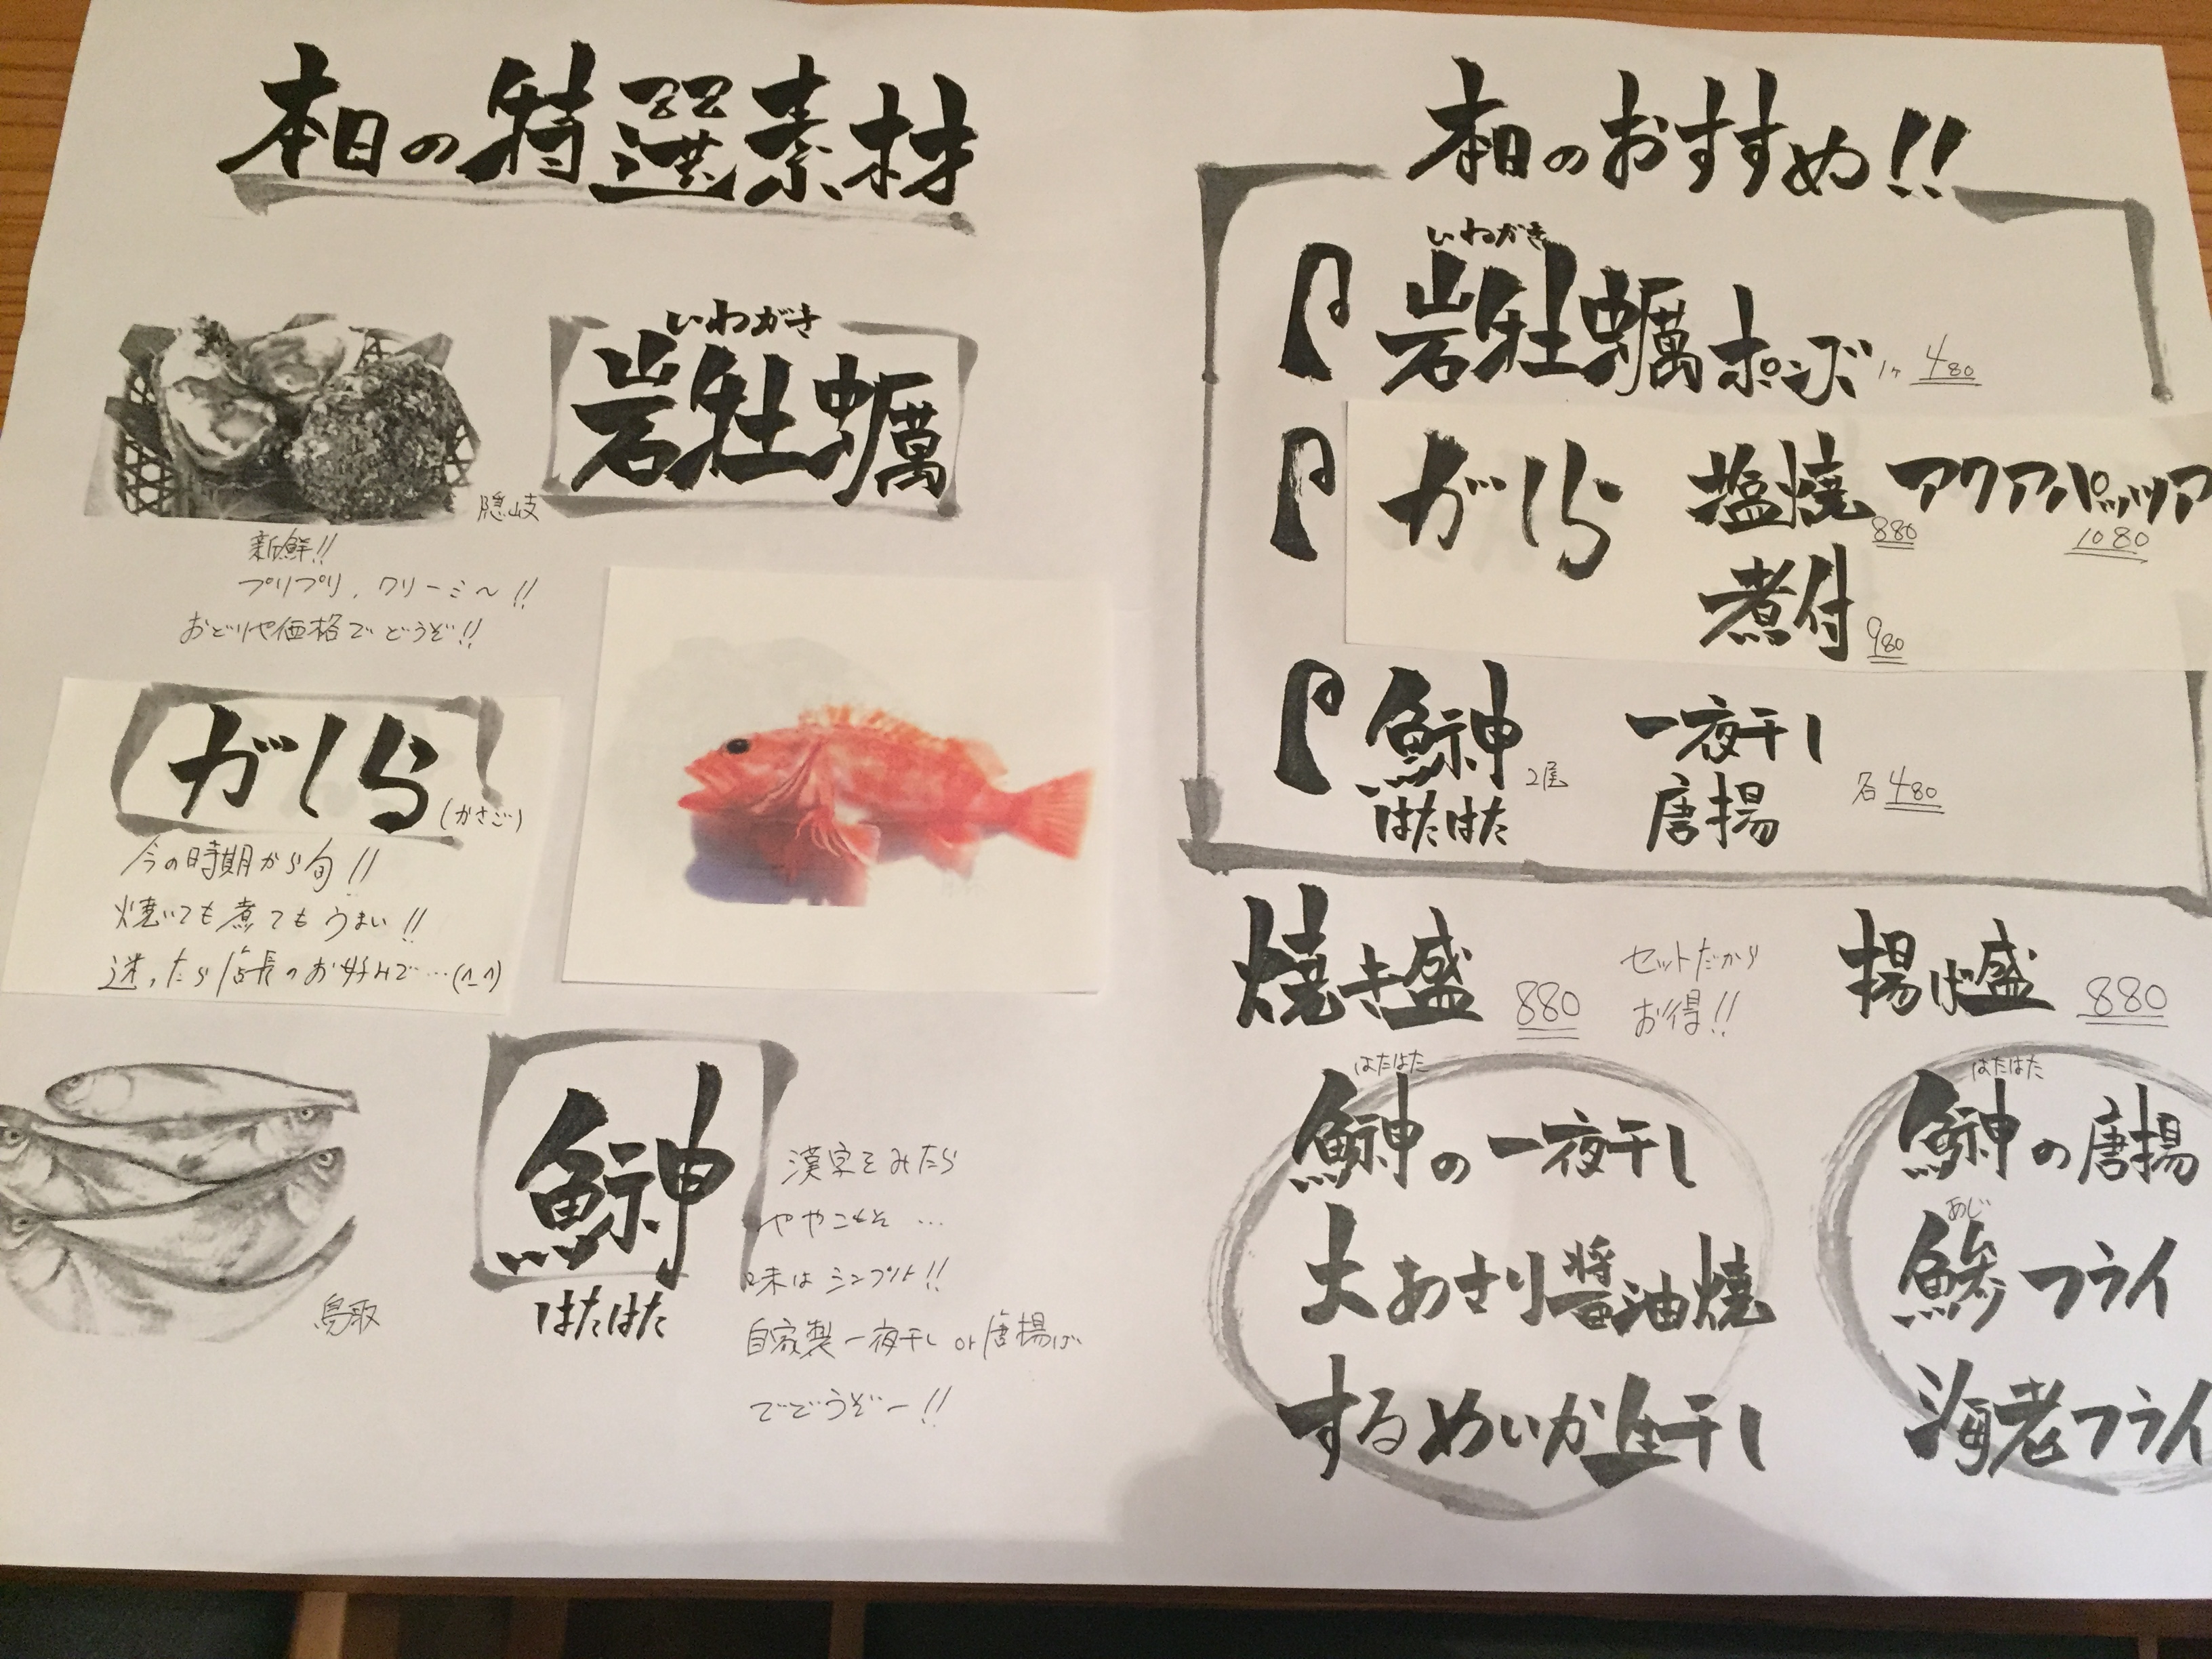 本日の特選素材
いわがき
岩牡蠣
隠岐
新鮮!!
プリプリ、クリーミ〜!!
おどりや価格でどうぞ!!
がしら
(かさご)
今の時期から旬!!
焼いても煮てもうまい!!
迷ったら店長のお好みで…(^_^)
鰰
はたはた
鳥取
漢字をみたら
ややこしそ…
味はシンプル!!
自家製一夜干しor唐揚げ
でどうぞー!!
本日のおすすめ!!
いわがき
岩牡蠣ポンズ 1ヶ 480
がしら 塩焼 880 アクアパッツア 1080
煮付 980
鰰 2尾 一夜干し
はたはた 唐揚 各480
焼き盛 880
セットだから
お得!!
揚げ盛 880
はたはた
鰰の一夜干し
大あさり醤油焼
するめいか生干し
はたはた
鰰の唐揚
あじ
鯵フライ
海老フライ